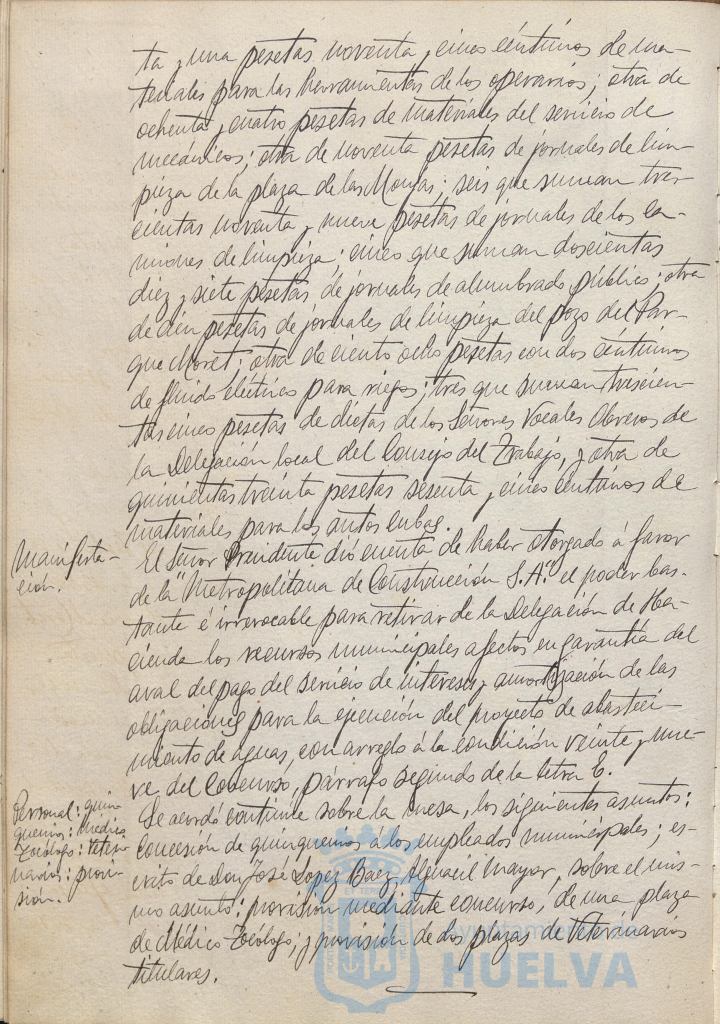 ta y una pesetas noventa y cinco céntimos de ma-
teriales para las herramientas de los operarios; otra de
ochenta y cuatro pesetas de materiales del servicio de
mecánicos; otra de noventa pesetas de jornales de lim-
pieza de la plaza de las Monjas; seis que suman tres-
cientas noventa y nueve pesetas de jornales de los ca-
miones de limpieza; cinco que suman doscientas
diez y siete pesetas de jornales de alumbrado público; otra
de cien pesetas de jornales de limpieza del pozo del Par-
que Moret; otra de ciento ocho pesetas con dos céntimos
de fluido eléctrico para riego; tres que suman trescien-
tas cinco pesetas de dietas de los Señores Vocales Obreros de
la Delegación local del Consejo del Trabajo, y otra de
quinientas treinta pesetas sesenta y cinco céntimos de
materiales para los autos cubas.
Manifesta-
ción.
El Señor Presidente dió cuenta de haber otorgado á favor
de la "Metropolitana de Construcción S.A." el poder bas-
tante é irrevocable para retirar de la Delegación de Ha-
cienda los recursos municipales afectos en garantía del
aval del pago del servicio de intereses y amortización de las
obligaciones para la ejecución del proyecto de abasteci-
miento de aguas, con arreglo á la condición veinte y nue-
ve del Concurso, párrafo segundo de la letra E.
Personal: quin
quenios: Médico
Tocólogo: Veteri-
narios: provi-
sión.
Se acordó continúe sobre la mesa, los siguientes asuntos:
concesión de quinquenios á los empleados municipales; es-
crito de Don José López Baez, Alguacil Mayor, sobre el mis-
mo asunto; provisión mediante concurso, de una plaza
de Médico Tocólogo; y provisión de dos plazas de Veterinarios
titulares.
Ayuntamiento de
HUELVA